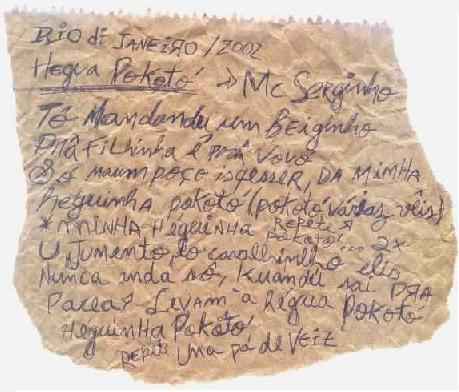 RIO di JANEIRO / 2002
Hegua Pokotó → Mc Serginho
Tô Mandandu um Beiginho
Prâ Filhinha é prá vovó
Só naum poço isqesser, DA MiMHA
heguinha pokotó (pokotó várias vêis)
* MINHA Heguinha Repeti
Pokotó... 2x
U Jumento, io cavallinho elis
Nunca anda só, Kuandu sai PRA
Levam a Regua POKOTÓ
Heguinha Pokotó
Repiti Uma pá de Veiz